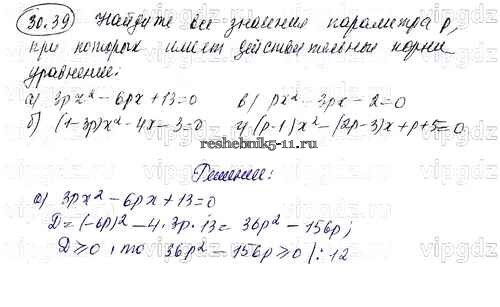 30.39 Найдите все значения параметра p,
при которых имеет действительные корни
уравнение:
а) 3px² - 6px + 13 = 0 в) px² - 3px - 2 = 0
б) (1-3p)x² - 4x - 3 = 0 г) (p-1)x² - (2p-3)x + p + 5 = 0
reshebnik5-11.ru
Решение:
а) 3px² - 6px + 13 = 0
D = (-6p)² - 4·3p·13 = 36p² - 156p;
D ⩾ 0, то 36p² - 156p ⩾ 0 /: 12